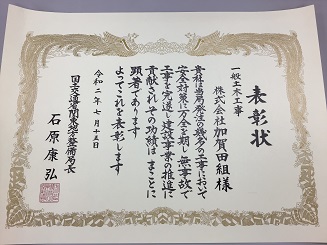 表彰状
一般土木工事
株式会社加賀田組様
貴社は当局発注の幾多の工事において
安全対策に万全を期し無事故で
工事を完遂し建設事業の推進に
貢献されその功績はまことに
顕著であります
よってこれを表彰します
令和二年七月十五日
国土交通省関東地方整備局長
石原康弘